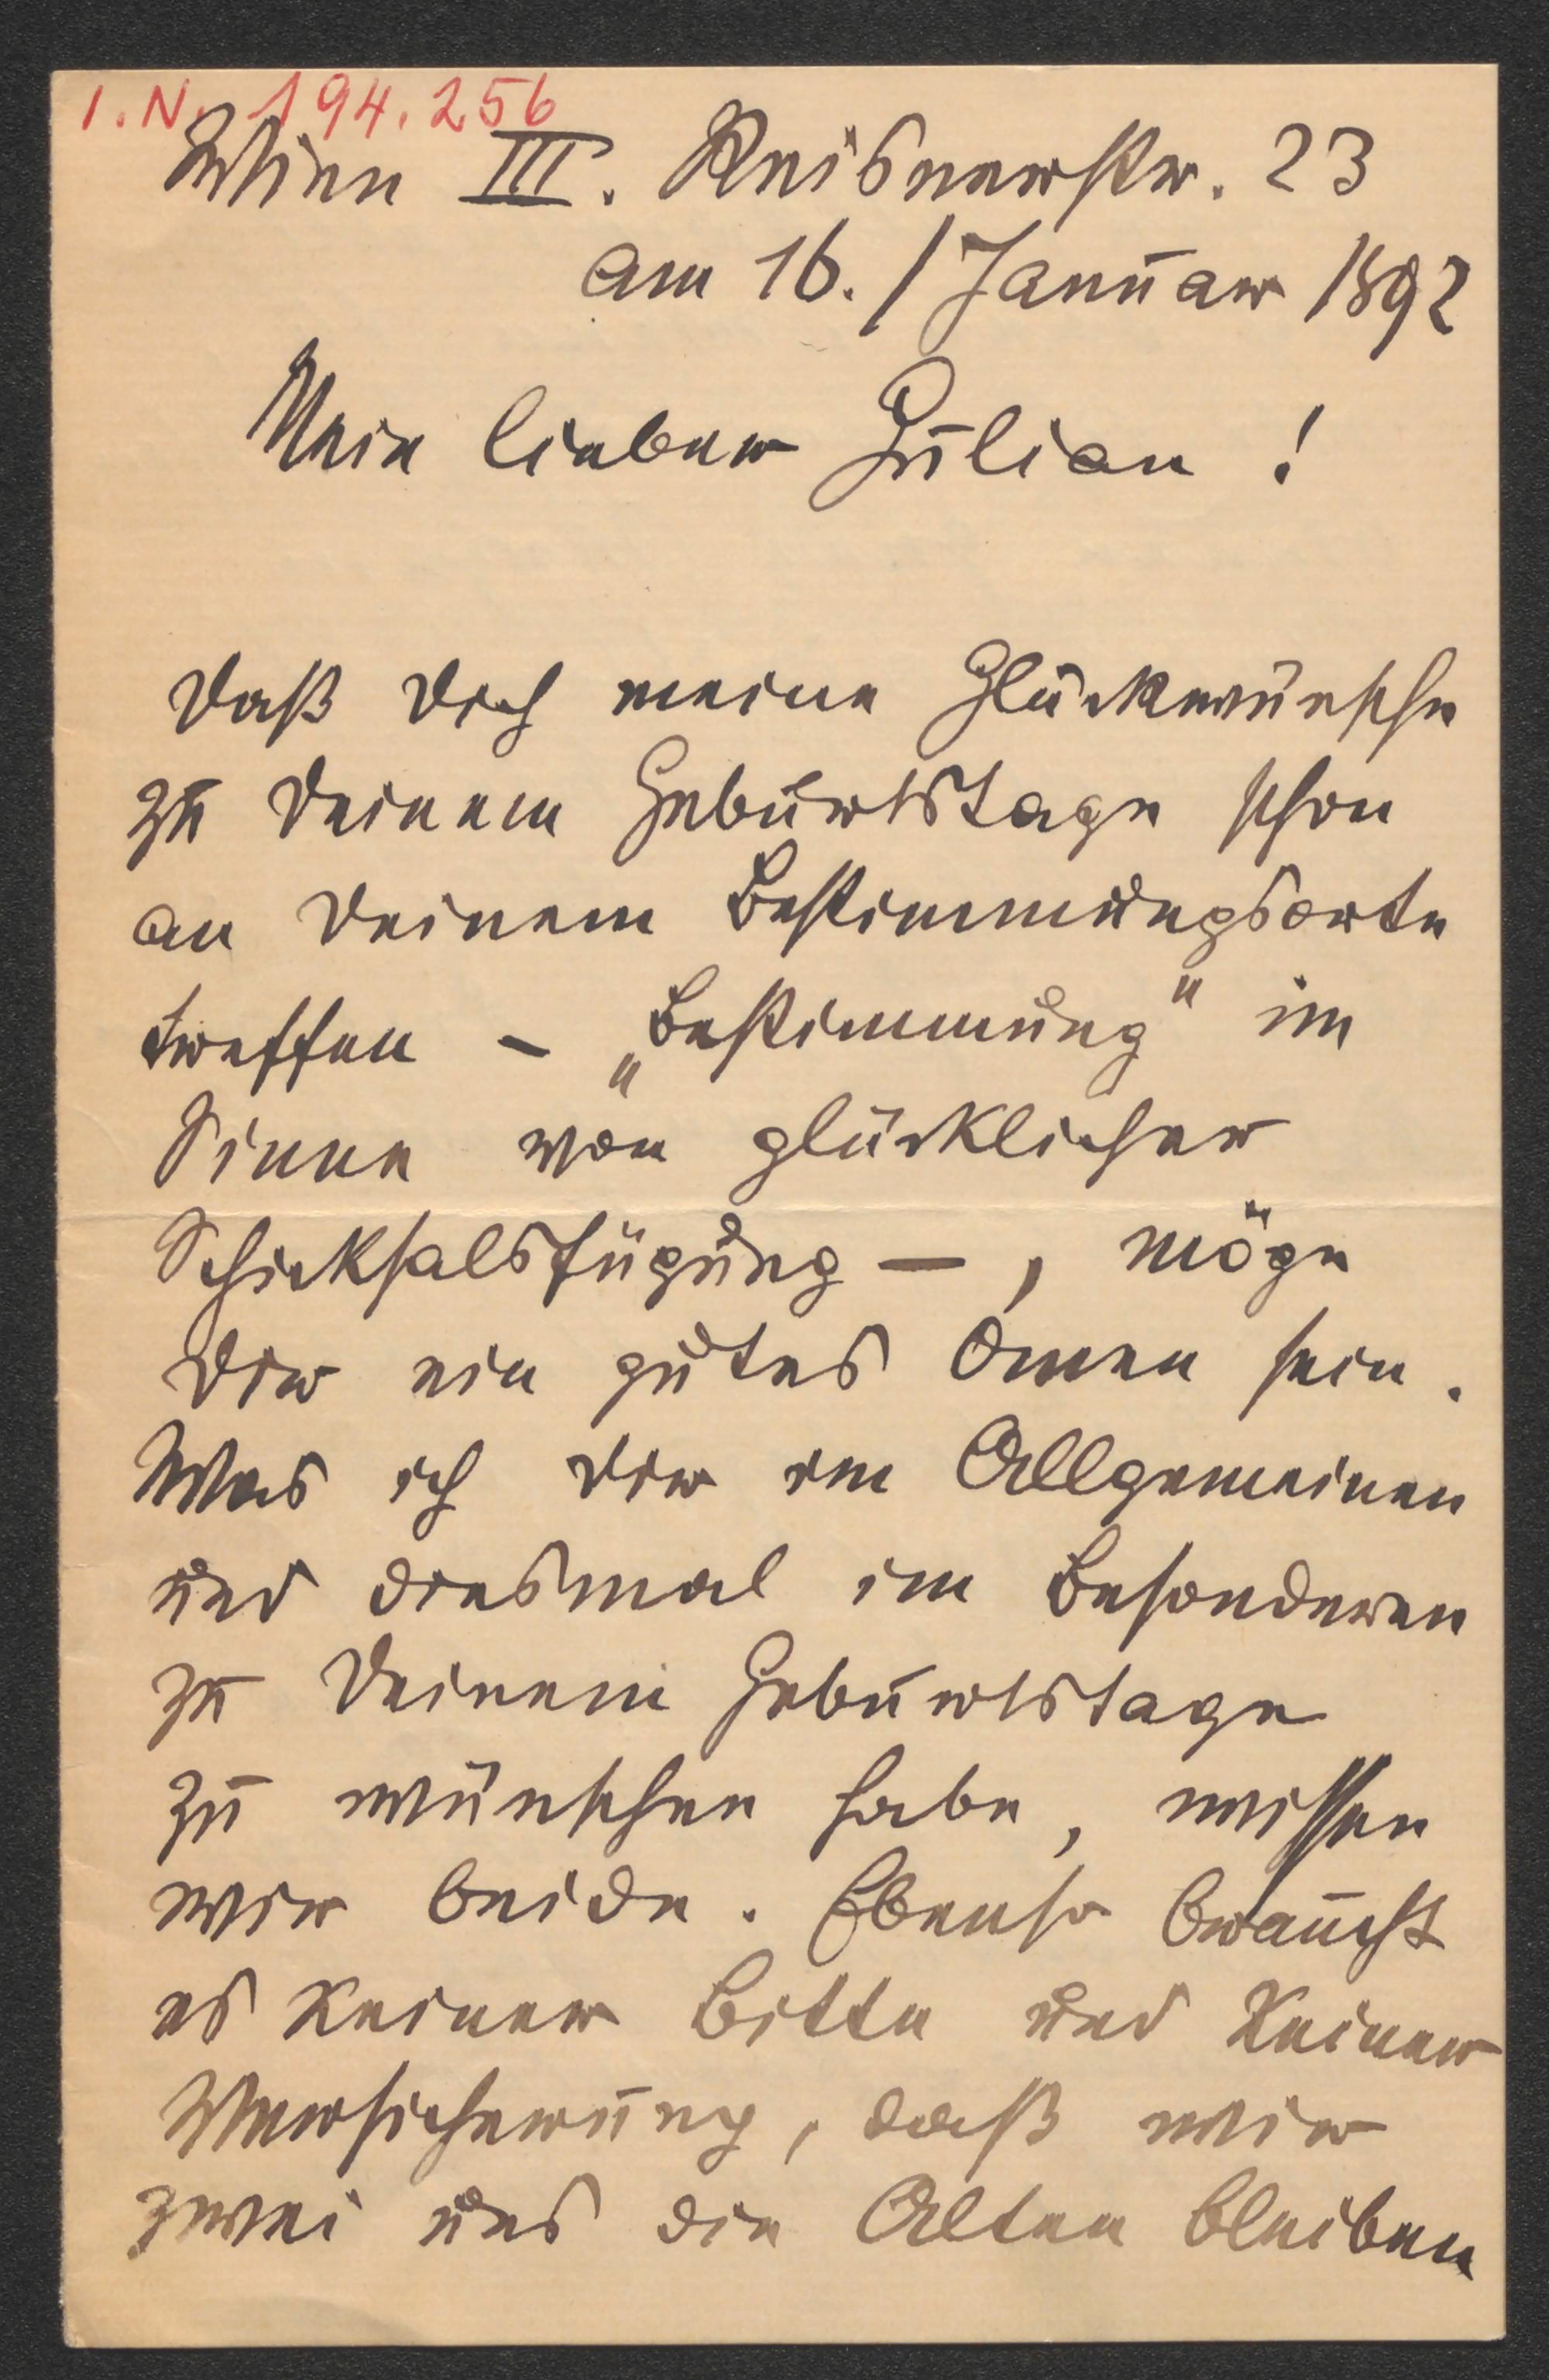 I.N. 194.256
Wien III. Reisnerstr. 23
am 16./Januar 1892
Mein lieber Julian!
Daß Dich meine Glückwünsche
zu Deinem Geburtstage schon
an Deinem Bestimmungsorte
treffen – „Bestimmung" im
Sinne von glücklicher
Schicksalsfügung –, möge
Dir ein gutes Omen sein.
Was ich Dir im Allgemeinen
und diesmal im Besonderen
zu Deinem Geburtstage
zu wünschen habe, wissen
wir beide. Ebenso braucht
es keiner Bitte und keiner
Versicherung, daß wir
zwei uns die Alten bleiben